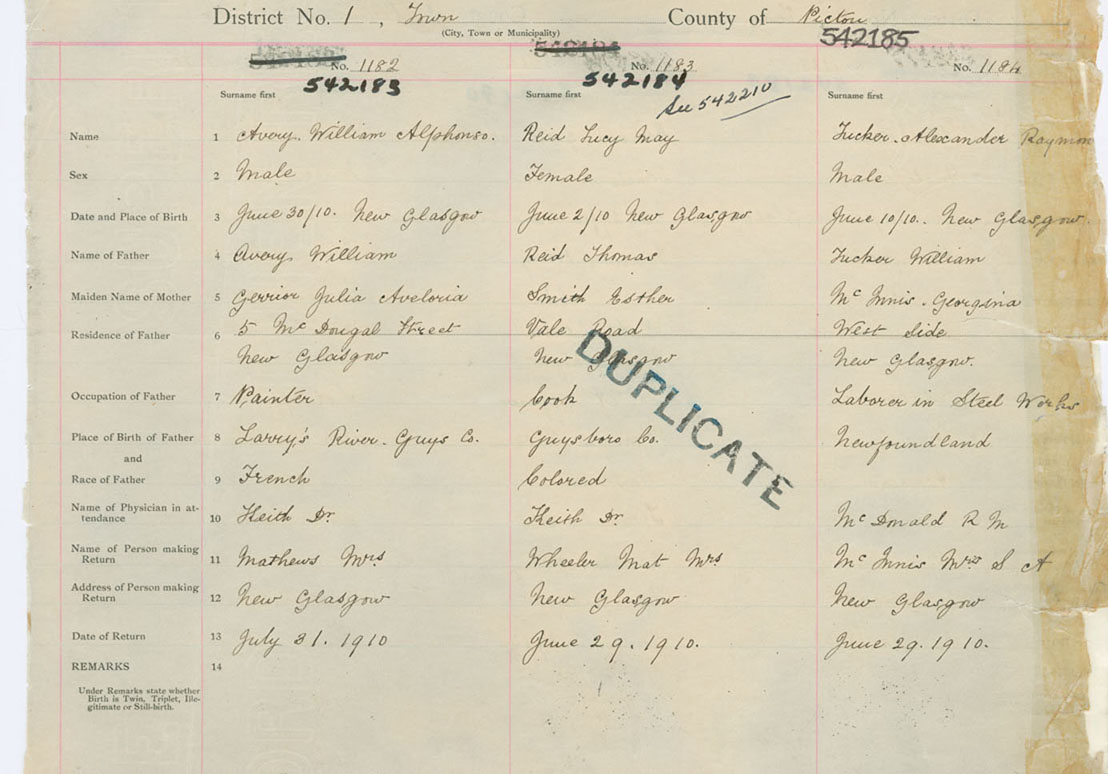 District No. 1, Town County of Pictou
(City, Town or Municipality)
542185
No. 1182 No. 1183 No. 1184
542183 542184
Surname first Surname first See 542210 Surname first
Name 1 Avery. William Alphonso. Reid Lucy May Tucker. Alexander Raymon
Sex 2 Male Female Male
Date and Place of Birth 3 June 30/10. New Glasgow June 2/10 New Glasgow June 10/10.. New Glasgow.
Name of Father 4 Avery William Reid Thomas Tucker William
Maiden Name of Mother 5 Gerrior Julia Aveloria Smith Esther Mc Innis. Georgina
Residence of Father 6 5 Mc Dougal Street Vale Road West Side
New Glasgow New Glasgow New Glasgow.
DUPLICATE
Occupation of Father 7 Painter Cook Laborer in Steel Works
Place of Birth of Father 8 Larry's River. Guys Co. Guysboro Co. Newfoundland
and
Race of Father 9 French Colored
Name of Physician in at-
tendance 10 Keith Dr. Keith Dr. Mc Donald R M
Name of Person making
Return 11 Mathews Mrs Wheeler Mat Mrs Mc Innis Mrs S A
Address of Person making
Return 12 New Glasgow New Glasgow New Glasgow
Date of Return 13 July 31. 1910 June 29. 1910. June 29. 1910.
REMARKS 14
Under Remarks state whether
Birth is Twin, Triplet, Ille-
gitimate or Still-birth.